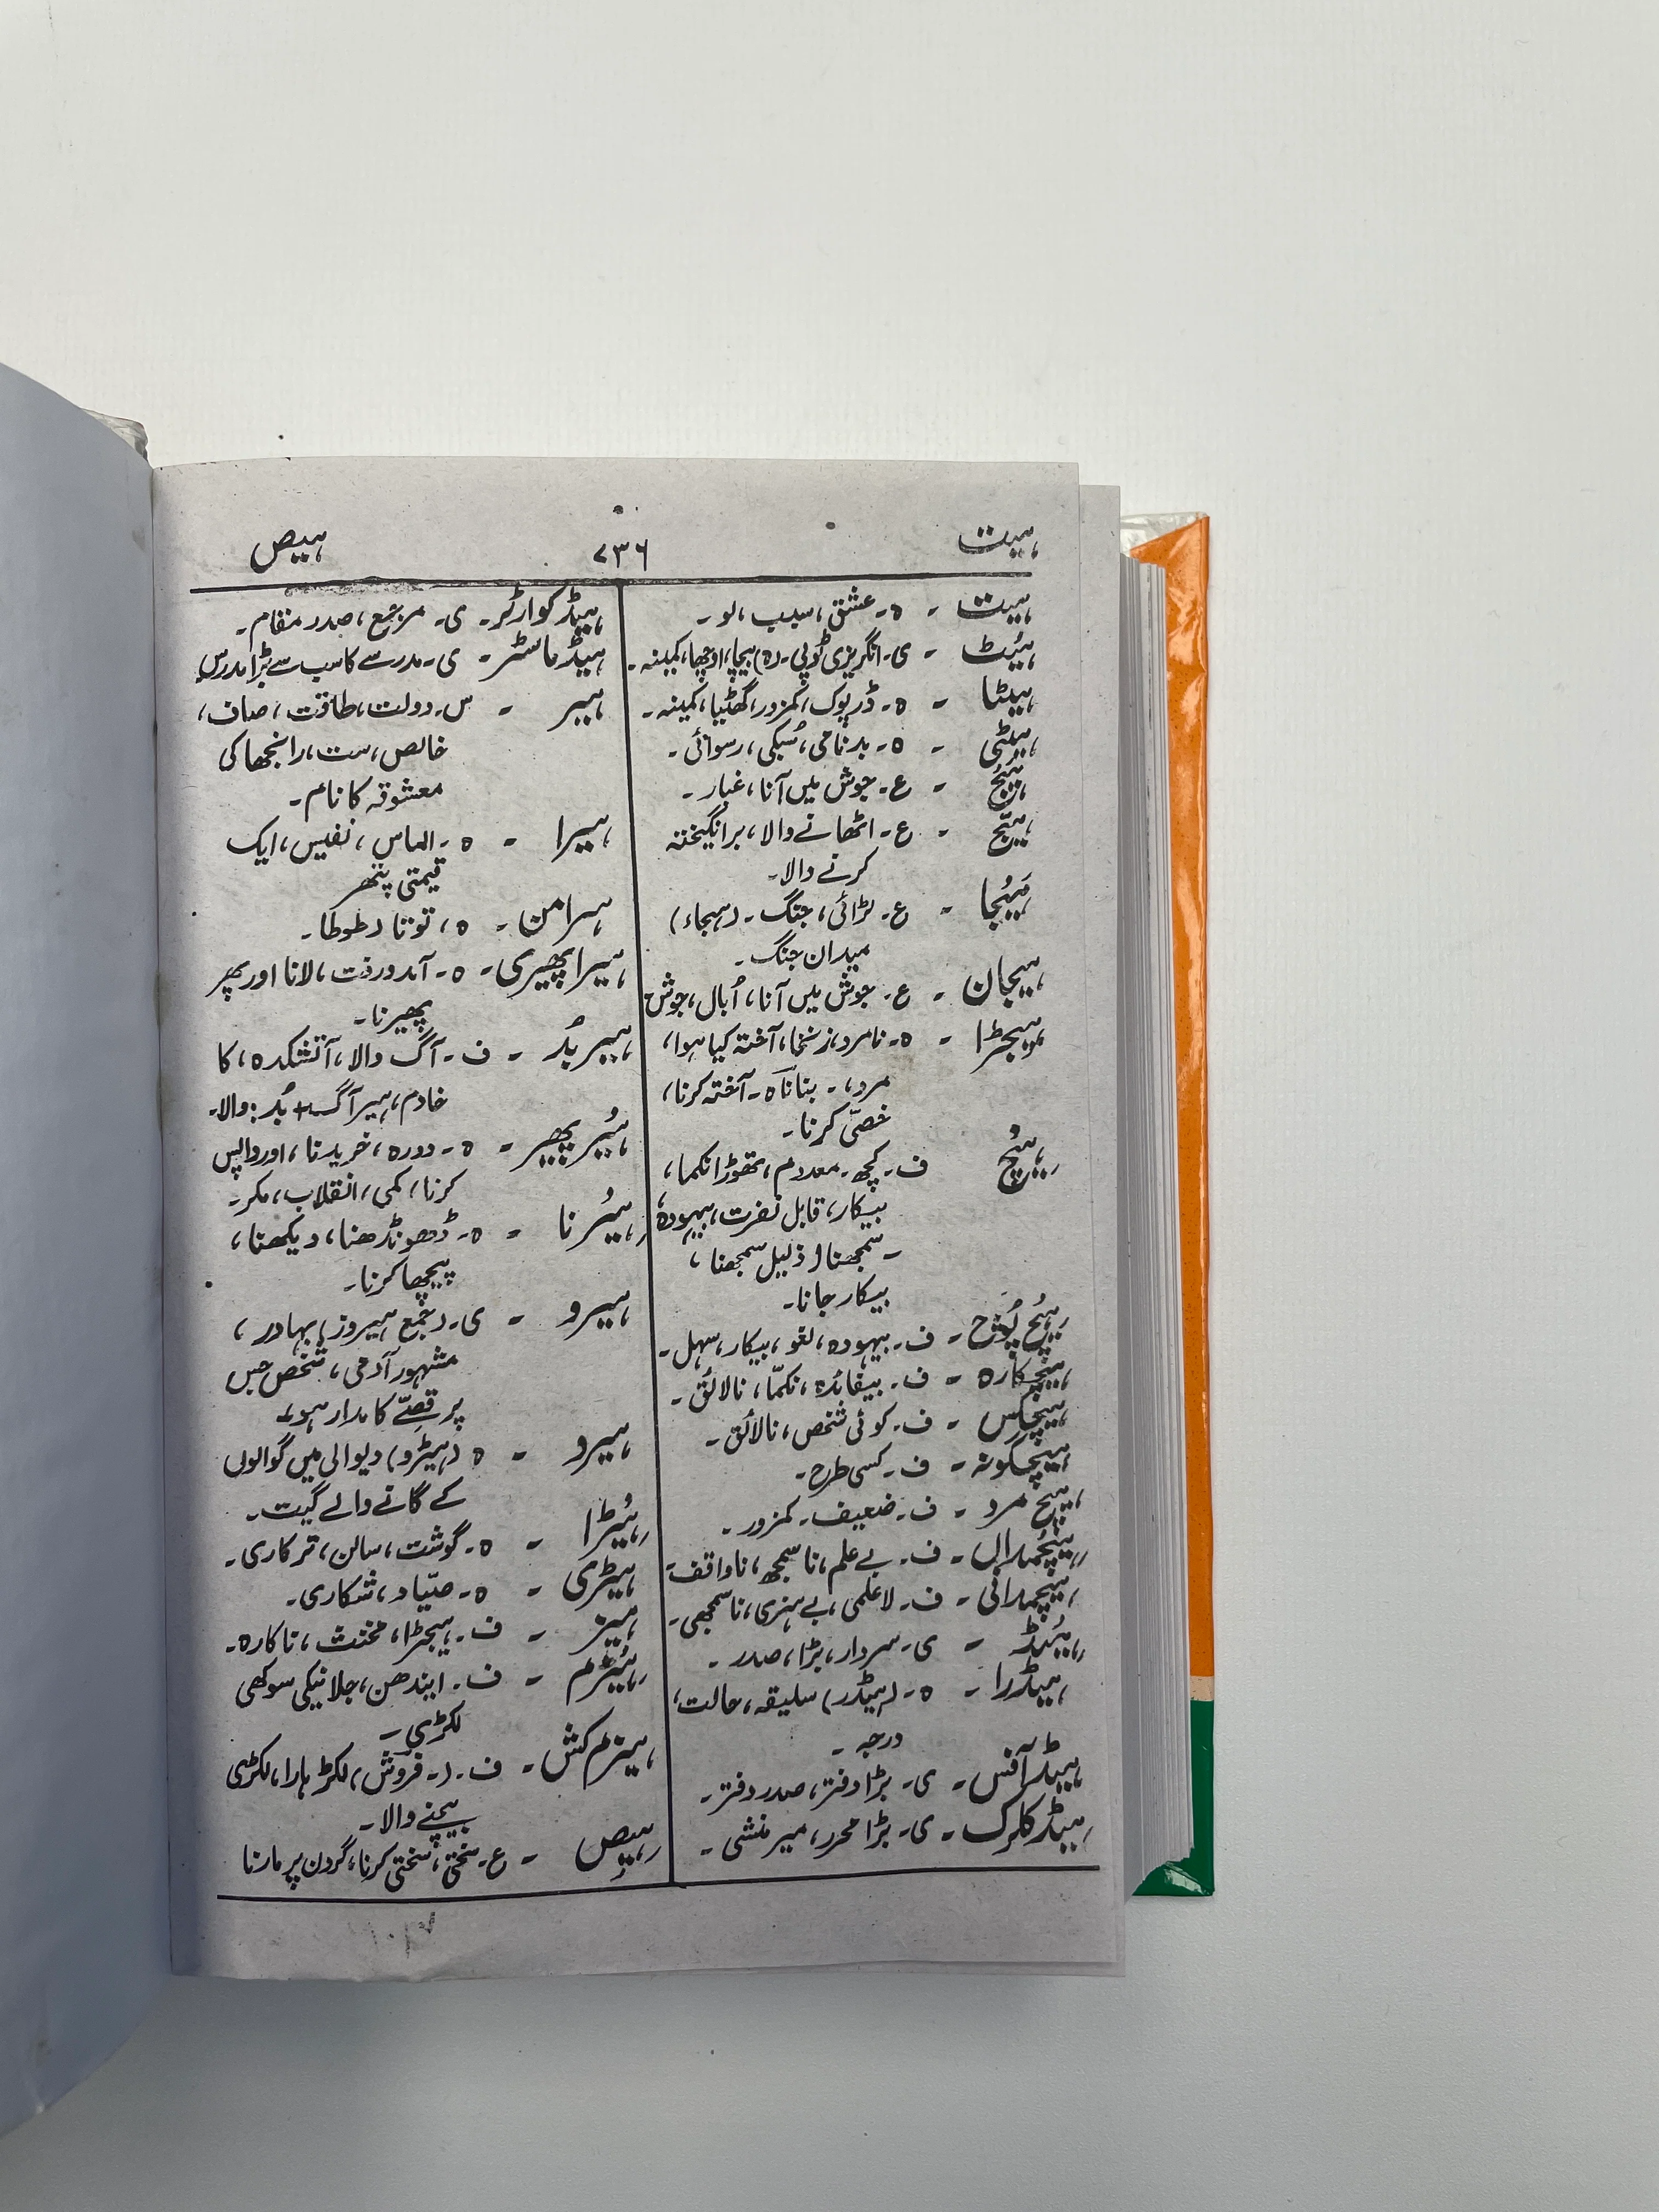 ہیت
۷۳۶
ہیص
ہیت - ہ۔ عشق، سبب، لو۔
ہیَٹ - ی۔ انگریزی ٹوپی۔ (ہ) بیچا، اوچھا، کمینہ۔
ہیٹا - ہ۔ ڈرپوک، کمزور، گھٹیا، کمینہ۔
ہیٹی - ہ۔ بدنامی، سُبکی، رسوائی۔
ہَیج - ع۔ جوش میں آنا، غبار۔
ہیّج - ع۔ اٹھانے والا، برانگیختہ
کرنے والا۔
ہَیجا - ع۔ لڑائی، جنگ۔ (ہیجاء)
میدان جنگ۔
ہیجان - ع۔ جوش میں آنا، اُبال، جوش
ہیجڑا - ہ۔ نامرد، زنخا، آختہ کیا ہوا،
مرد، ۔ بنانا ہ۔ آختہ کرنا،
خصّی کرنا۔
ہیچ ف۔ کچھ۔ معدوم، تھوڑا نکما،
بیکار، قابل نفرت، بیہودہ،
۔ سمجھنا (ذلیل سمجھنا،
بیکار جانا۔
ہیچ پُوچ - ف۔ بیہودہ، لغو، بیکار، سہل۔
ہیچکارہ - ف۔ بیفائدہ، نکمّا، نالائق۔
ہیچکس - ف۔ کوئی شخص، نالائق۔
ہیچگونہ - ف۔ کسی طرح۔
ہیچ مرد - ف۔ ضعیف۔ کمزور۔
ہیچمداں - ف۔ بے علم، نا سمجھ، ناواقف۔
ہیچمدانی - ف۔ لا علمی، بے ہنری، نا سمجھی۔
ہیَڈ - ی۔ سردار، بڑا، صدر۔
ہیڈرا - ہ۔ (ہیڈر) سلیقہ، حالت،
درجہ۔
ہیڈ آفس - ی۔ بڑا دفتر، صدر دفتر۔
ہیڈ کلرک - ی۔ بڑا محرر، میر منشی۔
ہیڈ کوارٹر - ی۔ مرجع، صدر مقام۔
ہیڈ ماسٹر - ی۔ مدرسے کا سب سے بڑا مدرس
ہیر - س۔ دولت، طاقت، صاف،
خالص، ست، رانجھا کی
معشوقہ کا نام۔
ہیرا - ہ۔ الماس، نفیس، ایک
قیمتی پتھر
ہیرامن - ہ، توتا (طوطا)۔
ہیرا پھیری - ہ۔ آمدورفت، لانا اور پھر
پھیرنا۔
ہیر بُد - ف۔ آگ والا، آتشکدہ، کا
خادم، ہیر آگ + بُد: والا۔
ہیَر پھیر - ہ۔ دورہ، خریدنا، اور واپس
کرنا، کمی، انقلاب، مکر۔
ہیَرنا - ہ۔ ڈھونڈھنا، دیکھنا،
پیچھا کرنا۔
ہیرو - ی۔ (جمع ہیروز) بہادر،
مشہور آدمی، شخص جس
پر قصّے کا مدار ہو۔
ہیرو - ہ (ہیڑو) دیوالی میں گوالوں
کے گانے والے گیت۔
ہیَڑا - ہ۔ گوشت، سالن، ترکاری۔
ہیڑی - ہ۔ صیّاد، شکاری۔
ہیز - ف۔ ہیجڑا، مخنث، ناکارہ۔
ہیَزم - ف۔ ایندھن، جلانیکی سوکھی
لکڑی۔
ہیزم کش - ف۔ (۔ فروش) لکڑ ہارا، لکڑی
بیچنے والا۔
ہیص - ع۔ سختی، سختی کرنا، گردن پر مارنا